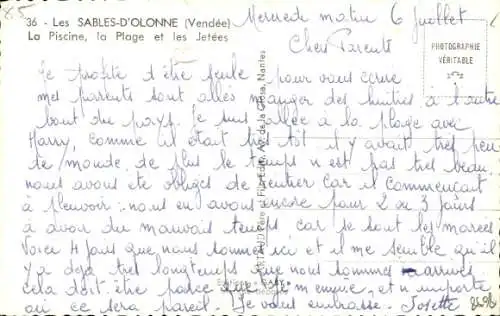 36 - Les SABLES-D'OLONNE (Vendée)
La Piscine, la Plage et les Jetées
Mercredi matin 6 Juillet
Chers Parents
PHOTOGRAPHIE
VÉRITABLE
Je profite d'être seule pour vous écrire
mes parents sont allés manger des huîtres à l'autre
bout du pays. Je suis allée à la plage avec
comme il était très tôt il y avait très peu
de monde de plus le temps n'est pas très beau.
nous avons été obligés de rentrer car il commençait
à pleuvoir. nous en avons encore pour 2 ou 3 jours
à avoir du mauvais temps car se sont les marées
Voici 4 jours que nous sommes ici et il me semble qu'il
y a déjà très longtemps que nous sommes arrivés
cela doit être parce que je m'ennuie, et n'importe
où ce sera pareil. Je vous embrasse. Josette